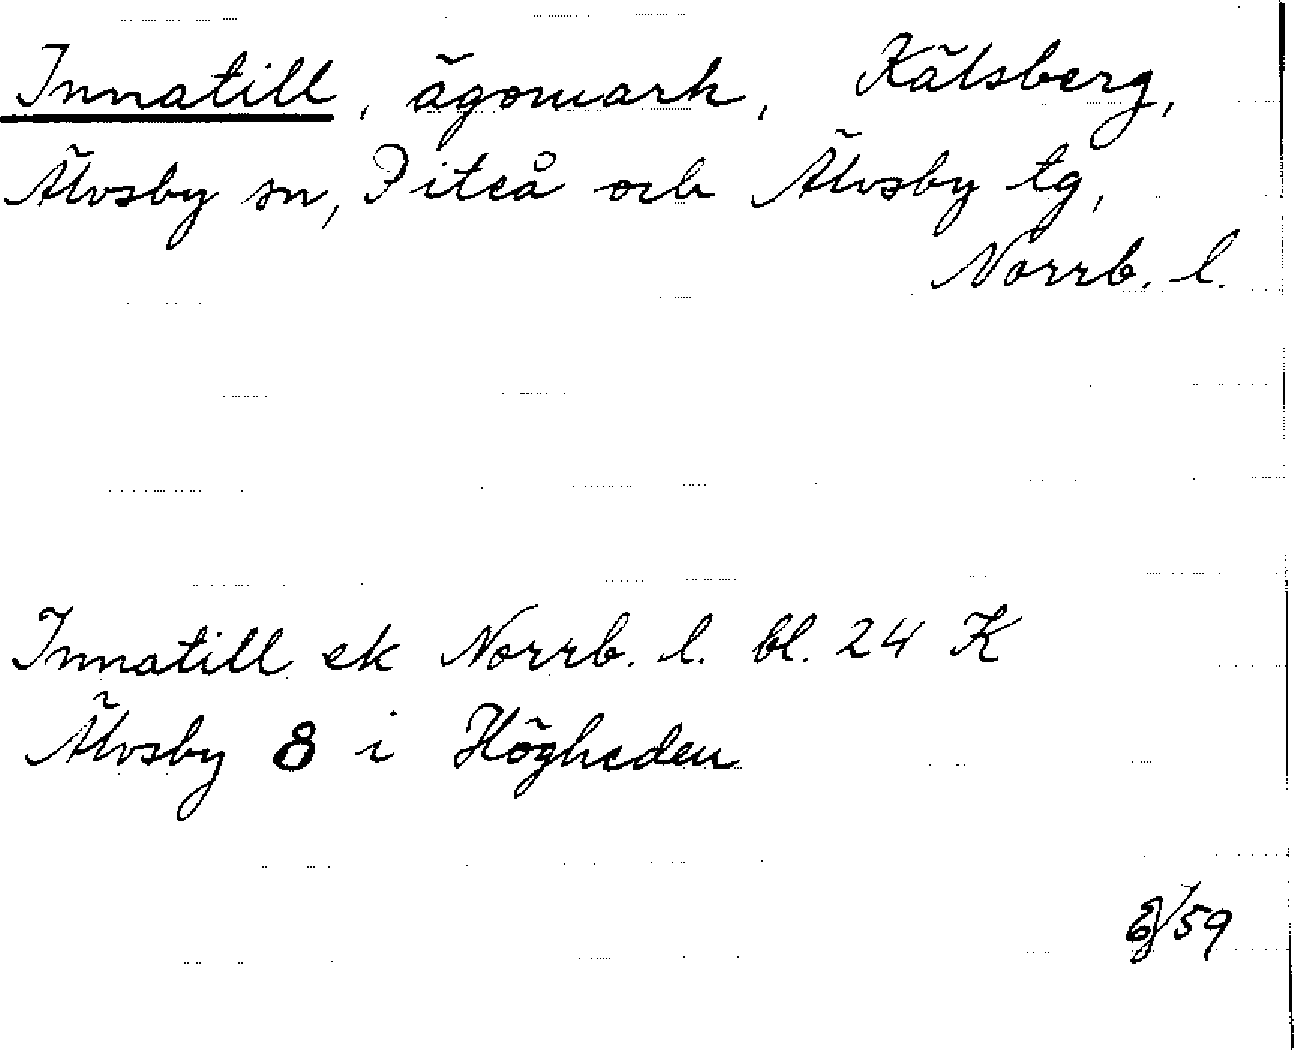 Innatill, ägomark, Kälsberg,
Älvsby sn, Piteå och Älvsby tg,
Norrb. l.
Innatill ek Norrb. l. bl. 24 K
Älvsby 8 i Högheden
/59